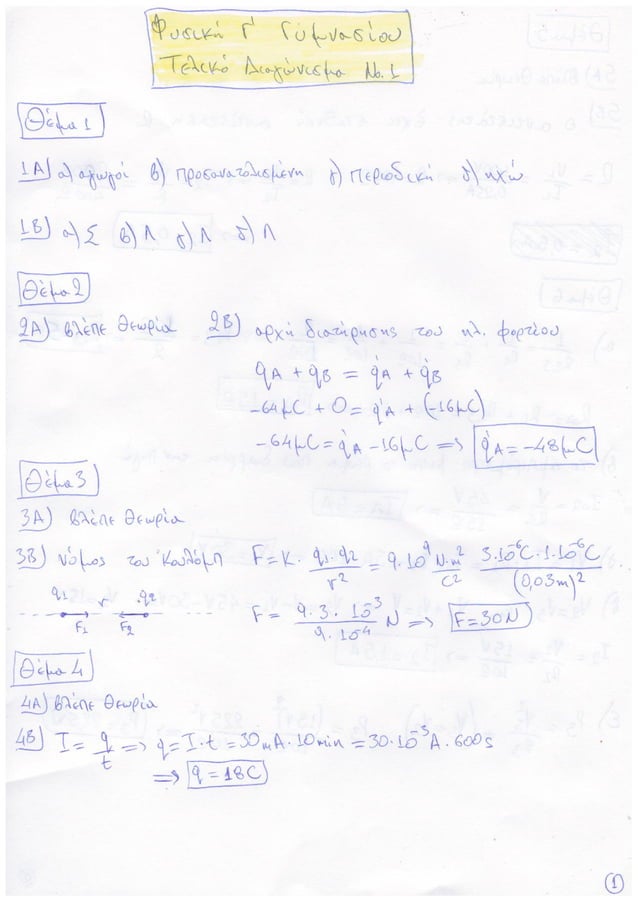 Φυσική Γ' Γυμνασίου
Τελικό Διαγώνισμα Νο.1
Θέμα 1
1Α) α) αγωγοί β) προσανατολισμένη γ) περιοδική δ) ηχώ
1Β) α) Σ β) Λ γ) Λ δ) Λ
Θέμα 2
2Α) βλέπε θεωρία 2Β) αρχή διατήρησης του ηλ. φορτίου
qA + qB = q'A + q'B
-64μC + 0 = q'A + (-16μC)
-64μC = q'A - 16μC => q'A = -48μC
Θέμα 3
3Α) βλέπε θεωρία
3Β) νόμος του Κουλόμπ F = K · q1·q2 / r² = 9·10⁹ N·m²/C² 3·10⁻⁶C·1·10⁻⁶C / (0,03m)²
q1 r q2
F1 F2
F = 9·3·10⁻³ / 9·10⁻⁴ N => F = 30N
Θέμα 4
4Α) βλέπε θεωρία
4Β) I = q/t => q = I·t = 30mA·10min = 30·10⁻³A·600s
=> q = 18C
1